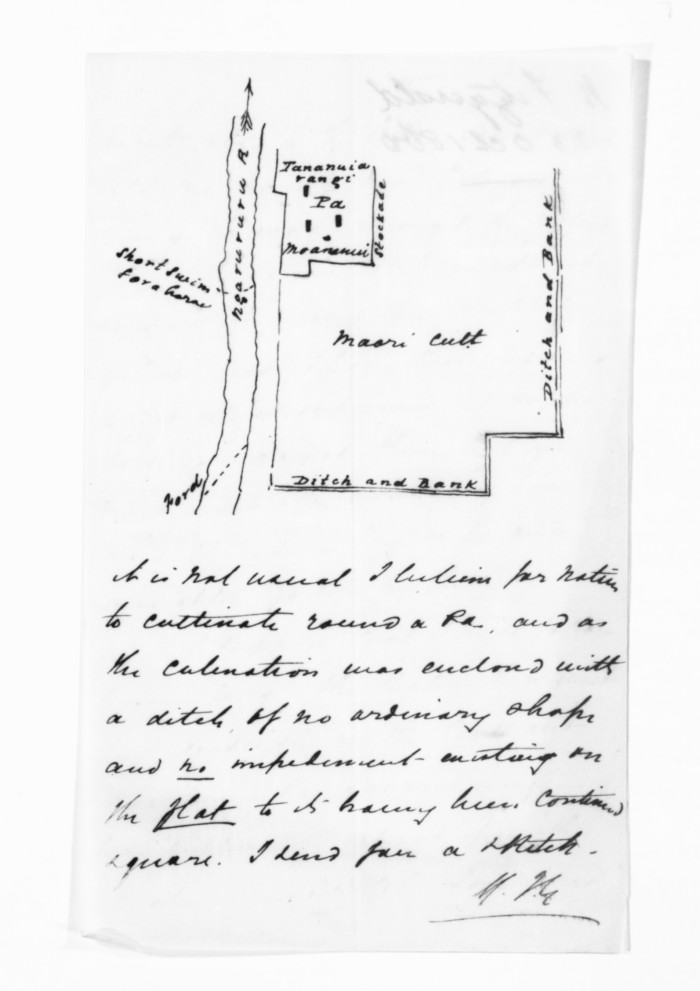 Tananuia
rangi
Pa
Moananui
Stockade
Ngaruroru R
Short Swim
for a horse
Maori Cult
Ditch and Bank
Ford
Ditch and Bank
it is not usual I believe for natives
to cultivate round a Pa, and as
the cultivation was enclosed with
a ditch of no ordinary shape
and no impediment existing on
the flat to its having been continued
square. I send you a sketch.